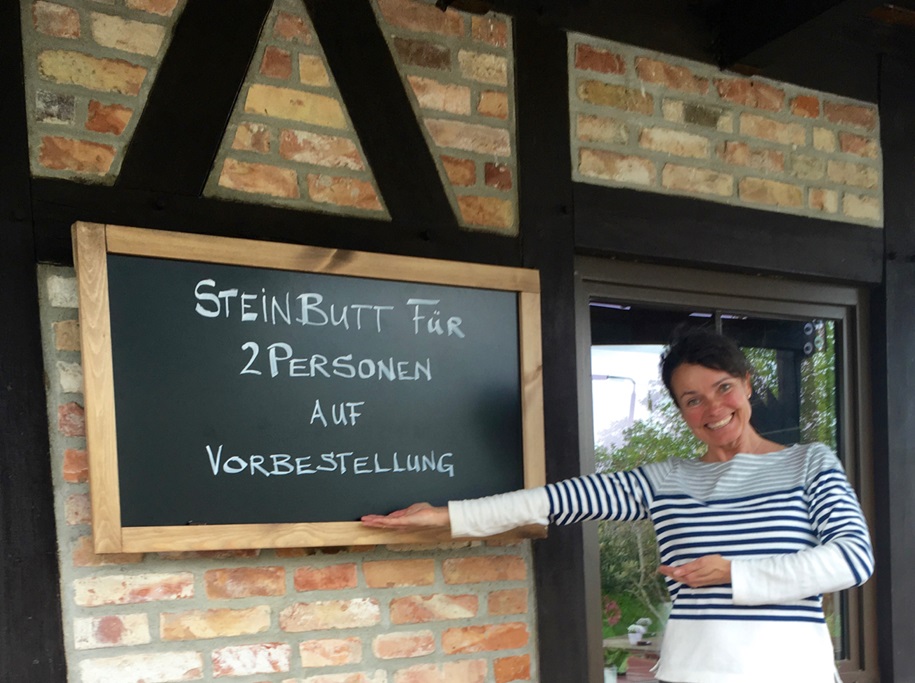 STEINBUTT FÜR
2 PERSONEN
AUF
VORBESTELLUNG